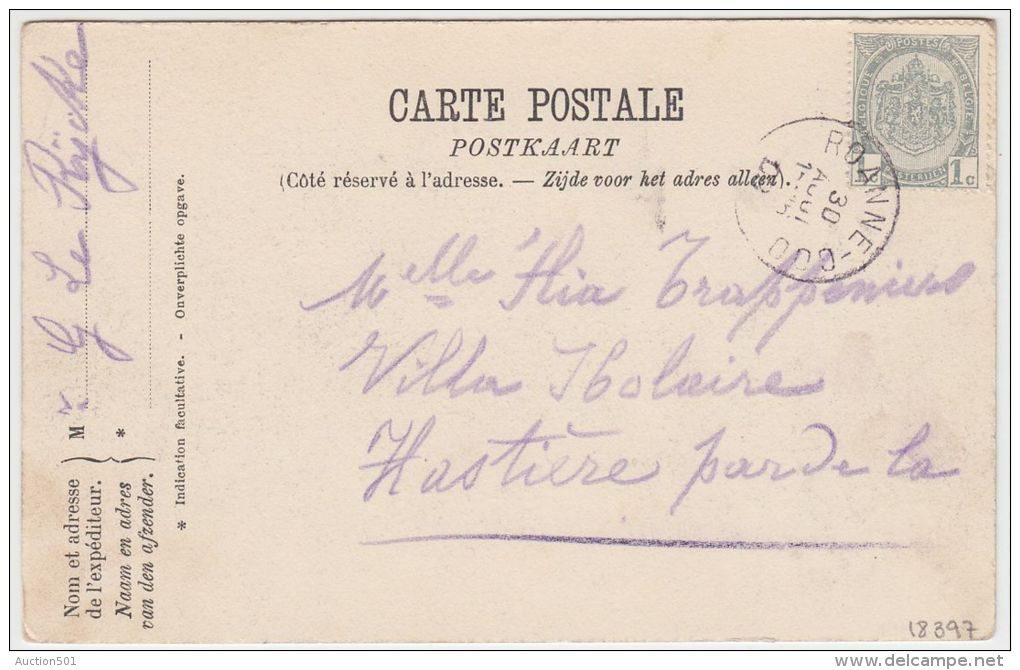 CARTE POSTALE
POSTKAART
(Côté réservé à l'adresse. — Zijde voor het adres alleen).
BELGIQUE POSTES BELGIE
1 POSTERIJEN 1c
ROANNE-COO
30
AOUT
Melle
Villa
Hastière par de la
Nom et adresse
de l'expéditeur.
Naam en adres
van den afzender.
M
*
G De Rijcke
* Indication facultative. - Onverplichte opgave.
18397
Auction501
delcampe.net